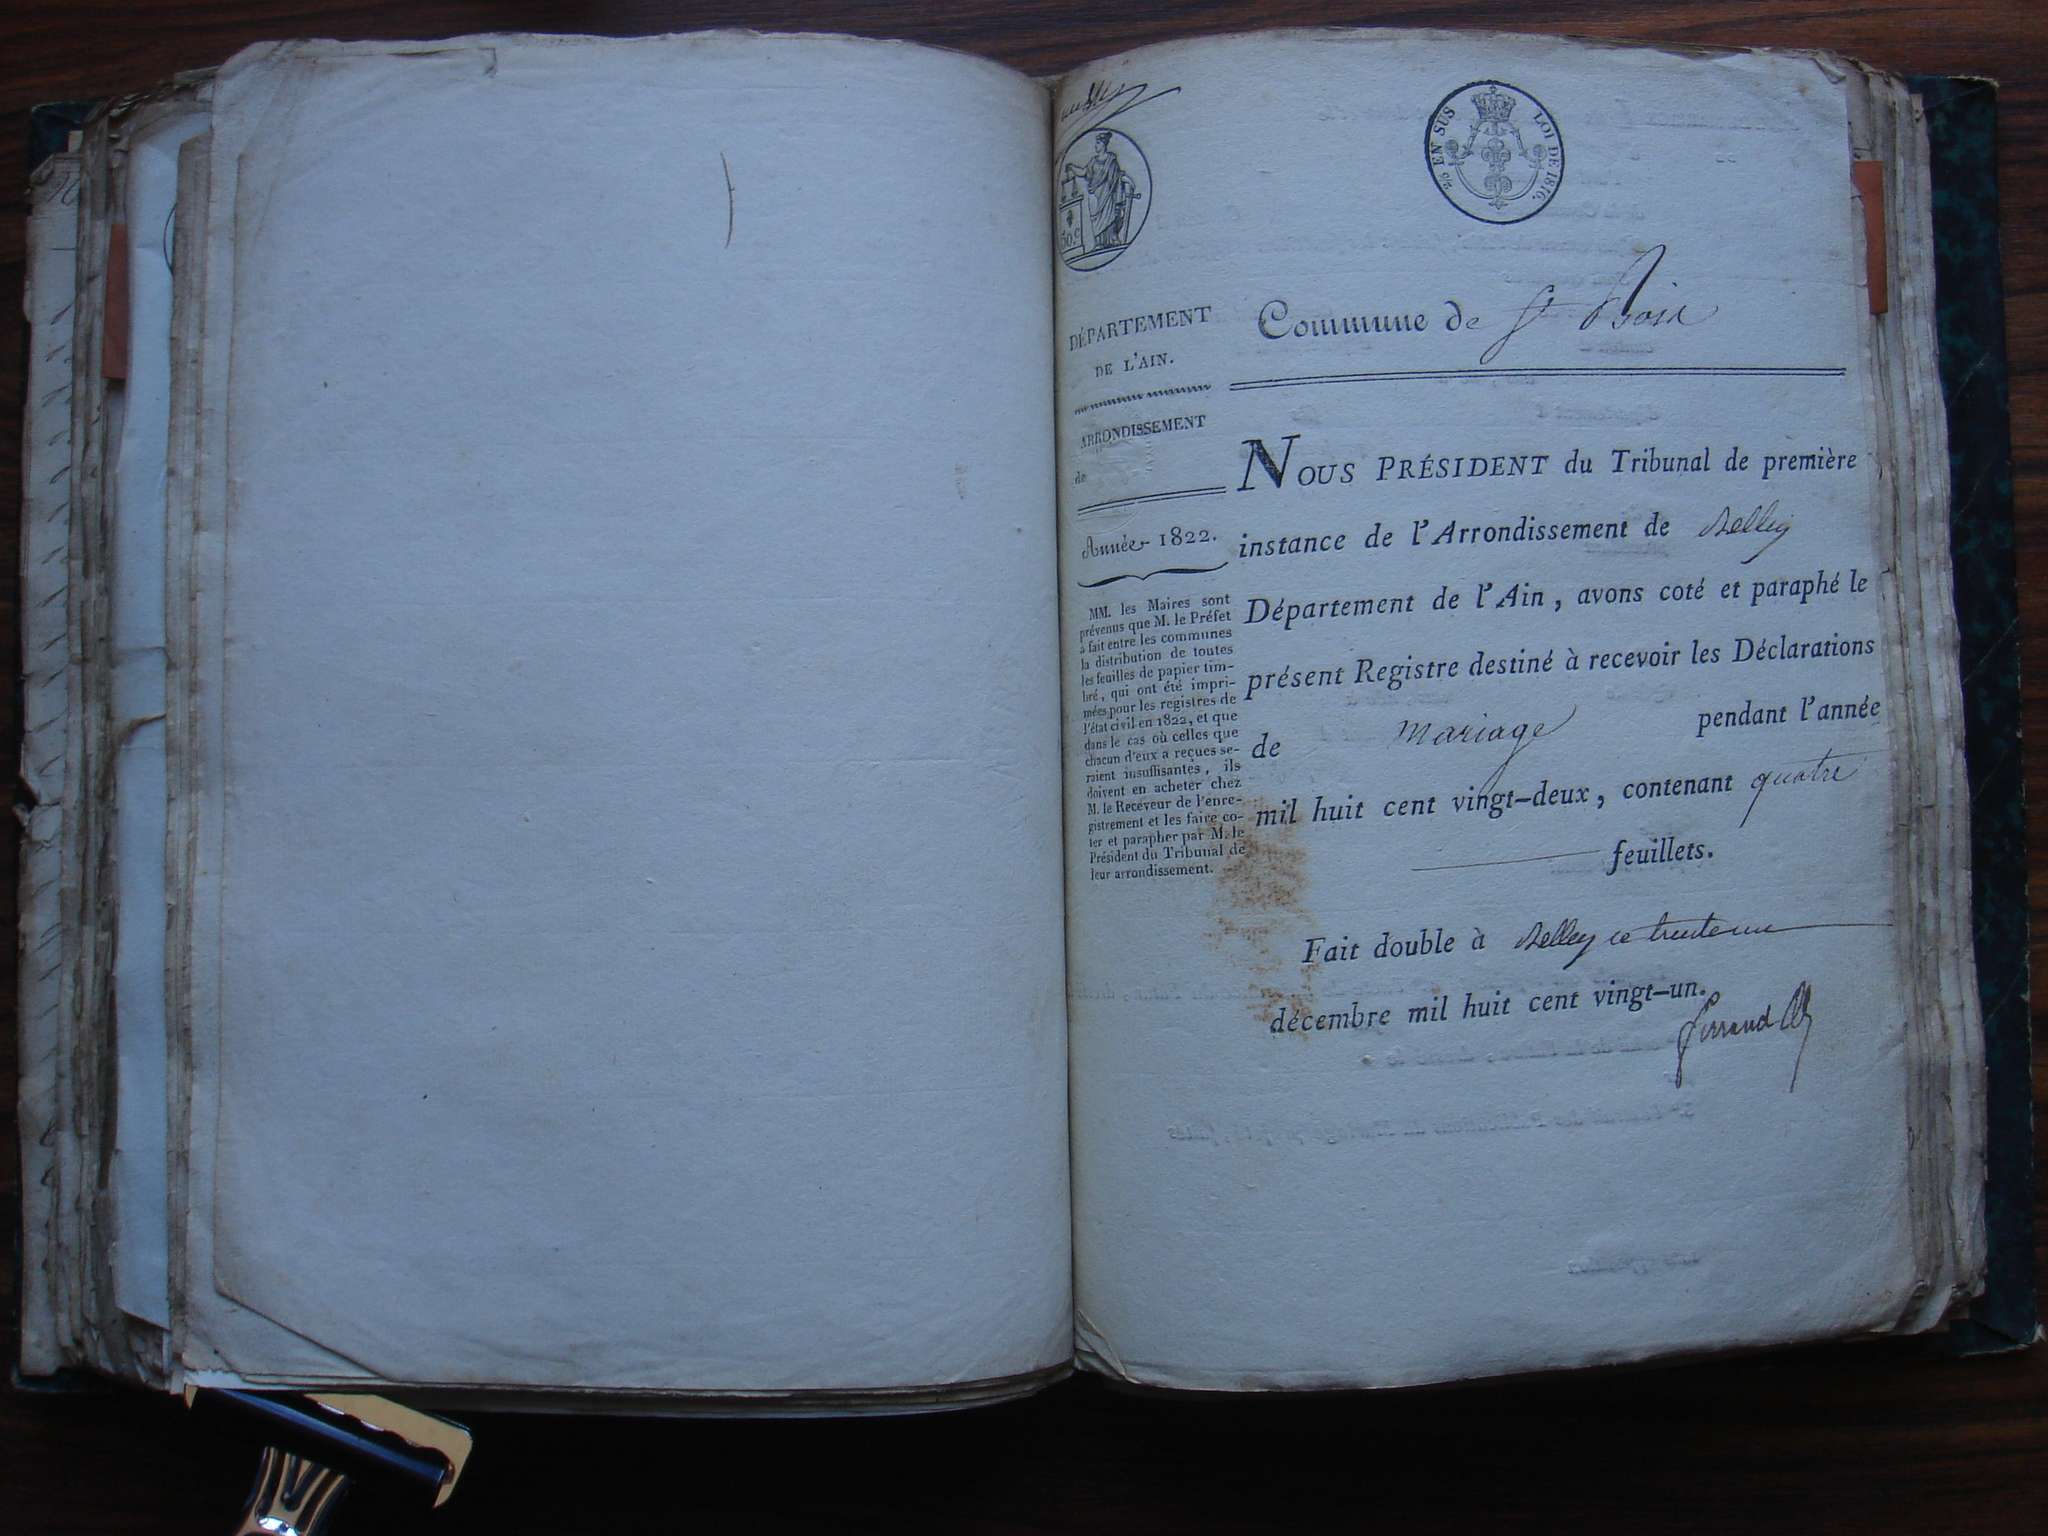 2/5 EN SUS LOI DE 1816.
50.c
DÉPARTEMENT
DE L'AIN.
ARRONDISSEMENT
de
Année 1822.
MM. les Maires sont
prévenus que M. le Préfet
a fait entre les communes
la distribution de toutes
les feuilles de papier tim-
bré, qui ont été impri-
mées pour les registres de
l'état civil en 1822, et que
dans le cas où celles que
chacun d'eux a reçues se-
raient insuffisantes, ils
doivent en acheter chez
M. le Receveur de l'enre-
gistrement et les faire co-
ter et parapher par M. le
Président du Tribunal de
leur arrondissement.
Commune de St Bois
NOUS PRÉSIDENT du Tribunal de première
instance de l'Arrondissement de Belley
Département de l'Ain, avons coté et paraphé le
présent Registre destiné à recevoir les Déclarations
de mariage pendant l'année
mil huit cent vingt-deux, contenant quatre
feuillets.
Fait double à Belley ce trente un
décembre mil huit cent vingt-un.